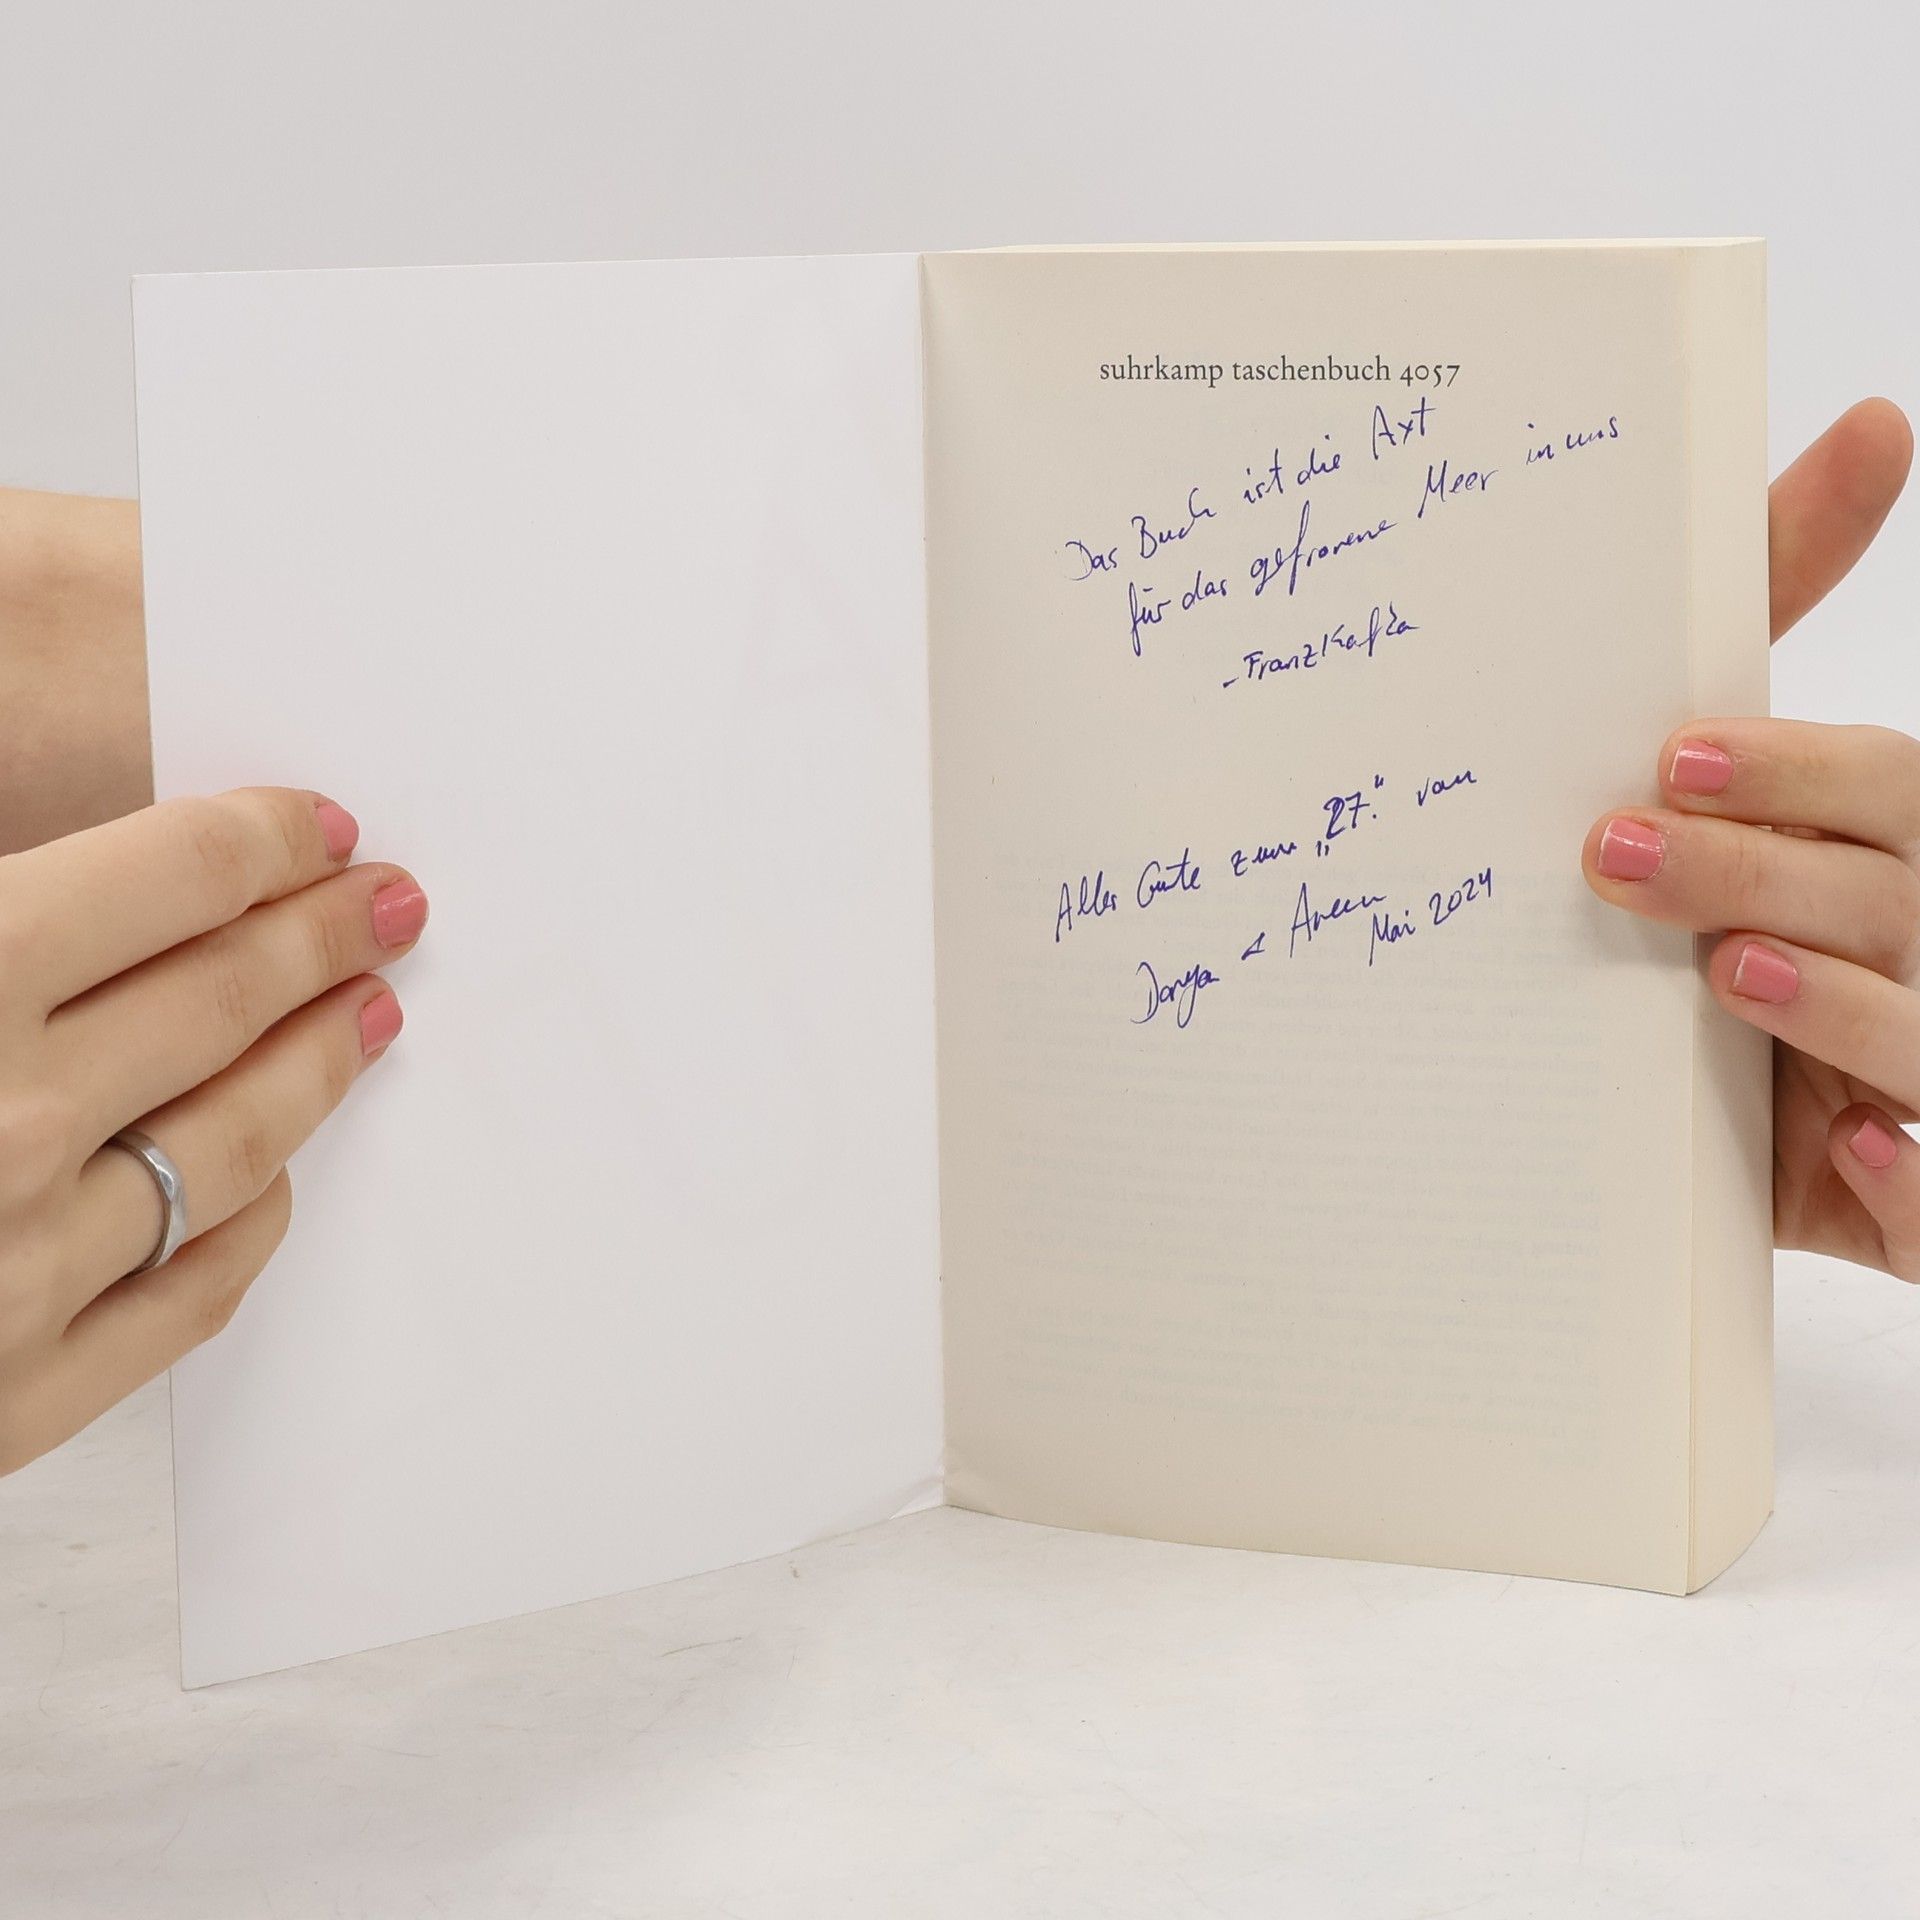 suhrkamp taschenbuch 4057
Das Buch ist die Axt
für das gefrorene Meer in uns
- Franz Kafka
Alles Gute zum „27.“ von
Dorya & Areen
Mai 2024